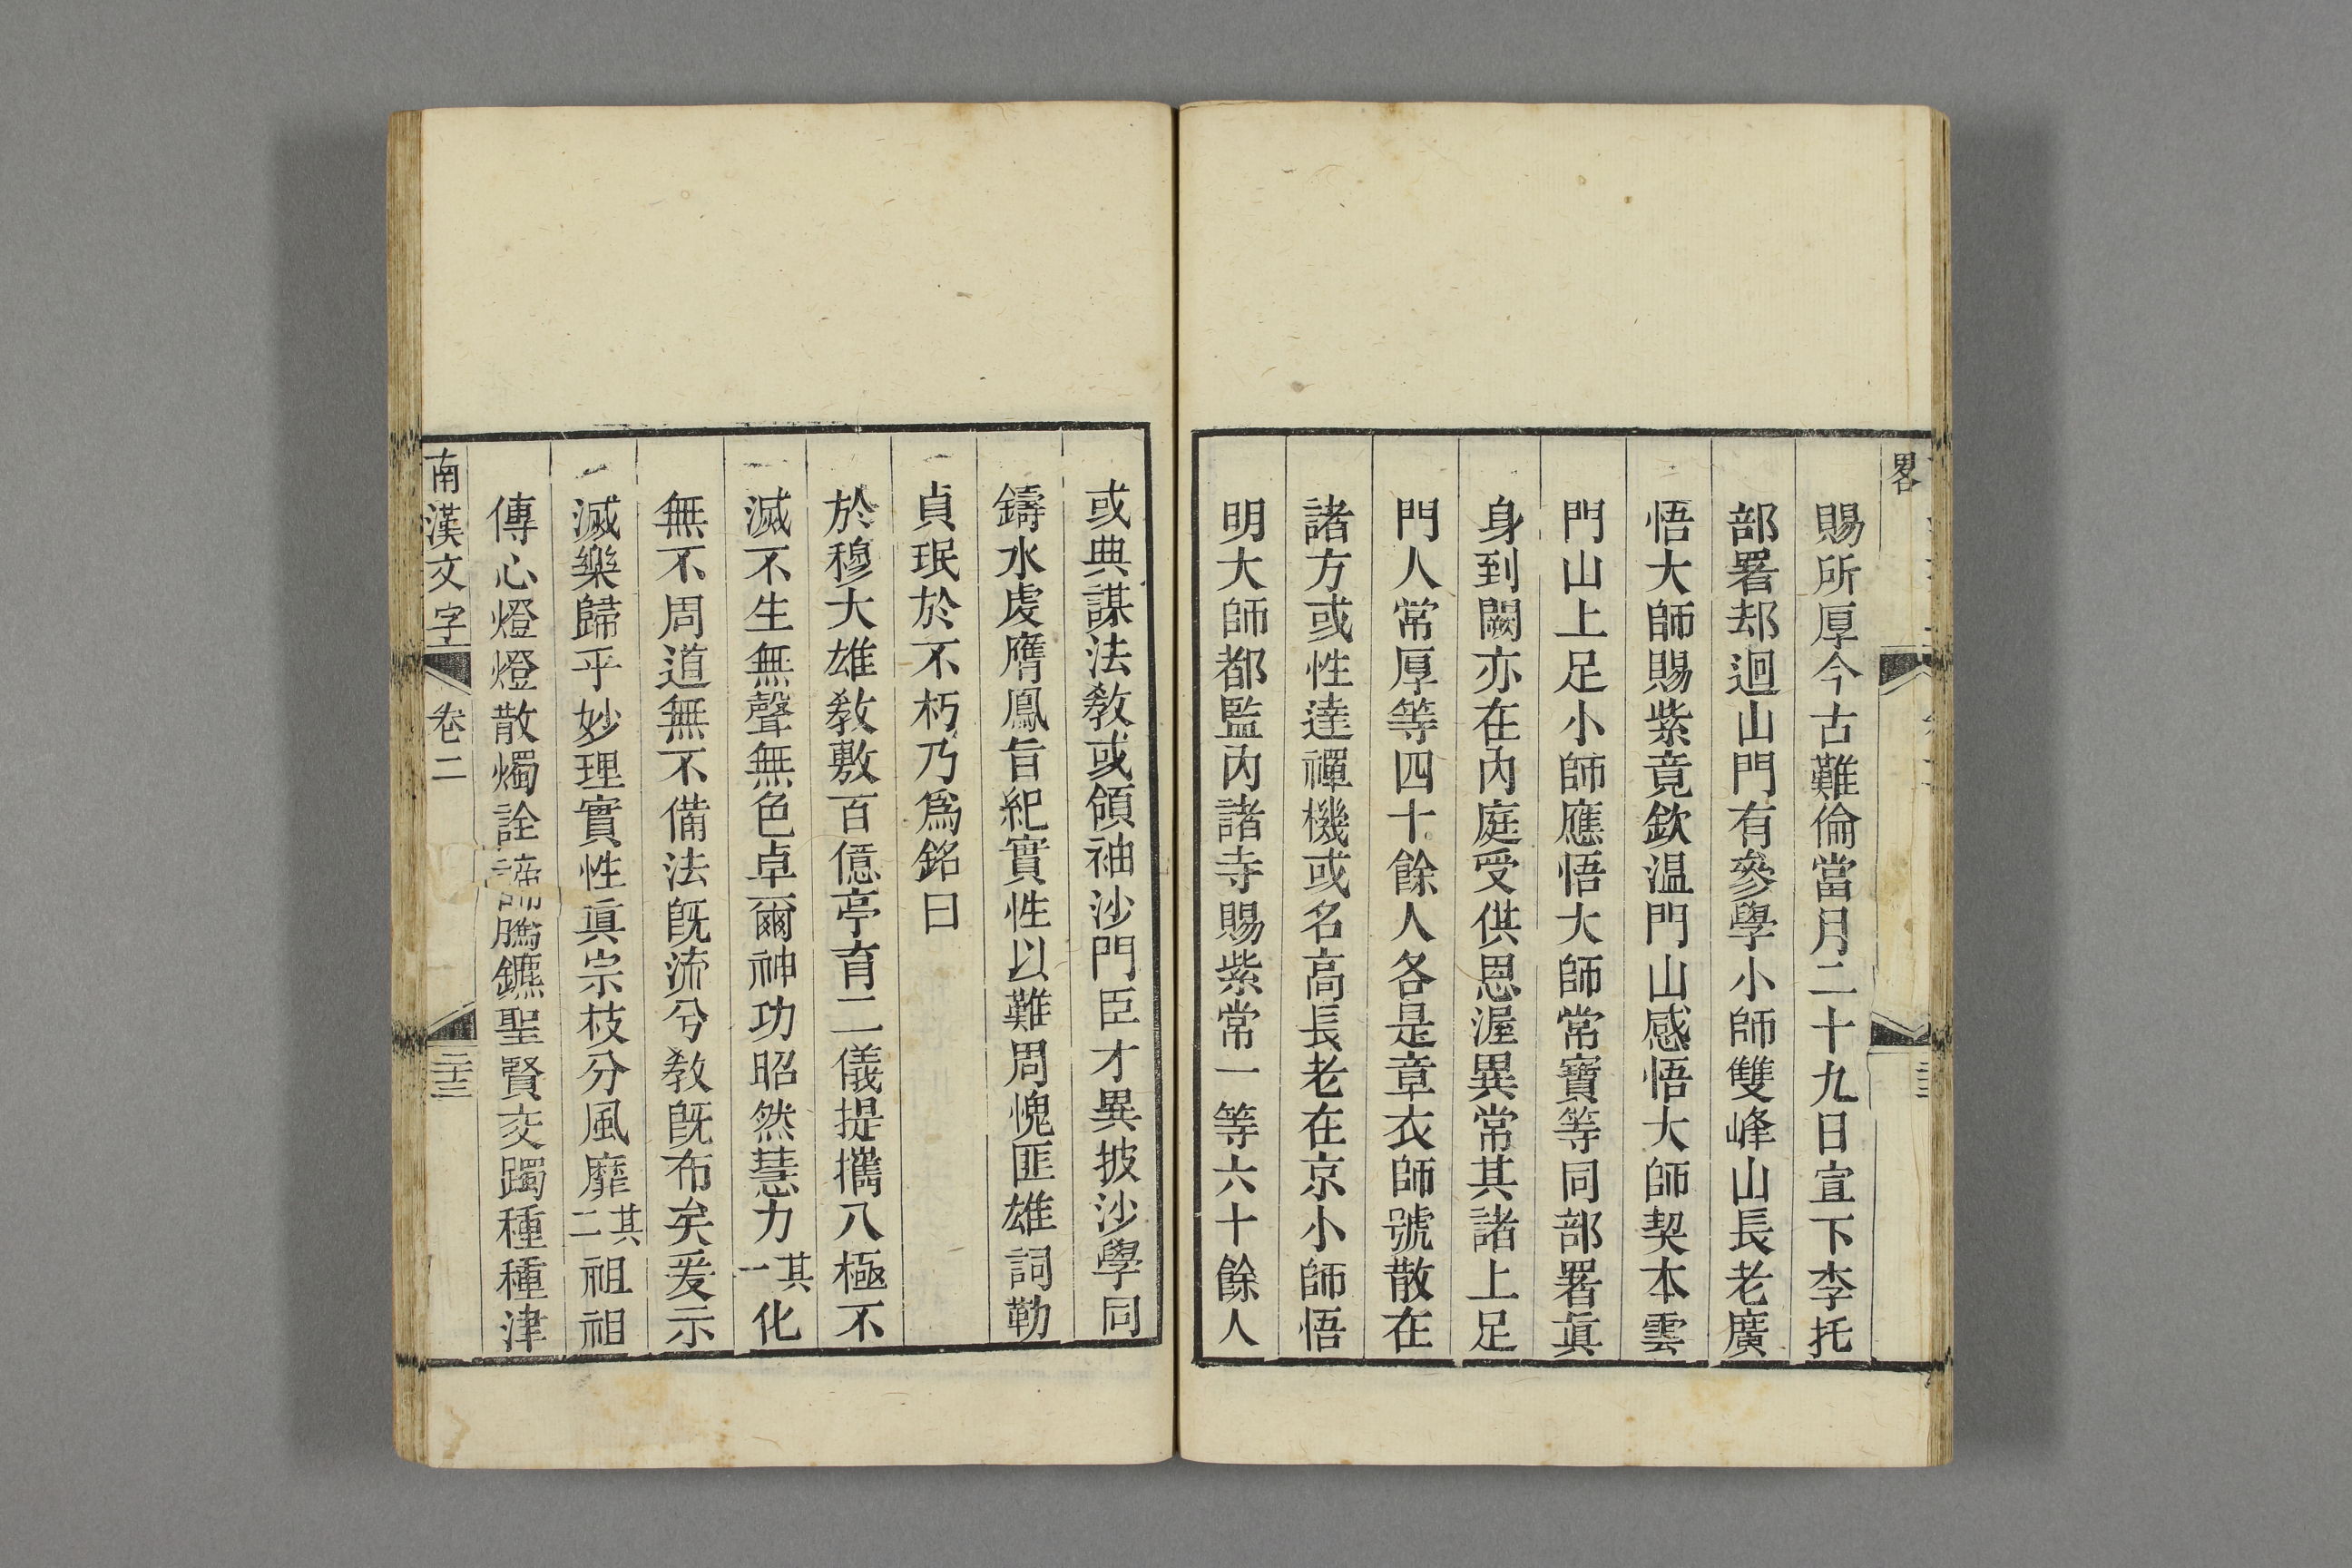 畧
賜所厚今古難倫當月二十九日宣下李托
部署却迴山門有參學小師雙峰山長老廣
悟大師賜紫竟欽温門山感悟大師契本雲
門山上足小師應悟大師常寶等同部署眞
身到闕亦在內庭受供恩渥異常其諸上足
門人常厚等四十餘人各是章衣師號散在
諸方或性達禪機或名高長老在京小師悟
明大師都監內諸寺賜紫常一等六十餘人
或典謀法敎或領袖沙門臣才異披沙學同
鑄水虔膺鳳旨紀實性以難周愧匪雄詞勒
貞珉於不朽乃爲銘曰
於穆大雄敎敷百億亭育二儀提攜八極不
滅不生無聲無色卓爾神功昭然慧力其一化
無不周道無不備法旣流兮敎旣布矣爰示
滅樂歸乎妙理實性眞宗枝分風靡其二祖祖
傳心燈燈散燭詮諦騰鑣聖賢交躅種種津
南漢文字
卷二
二十三